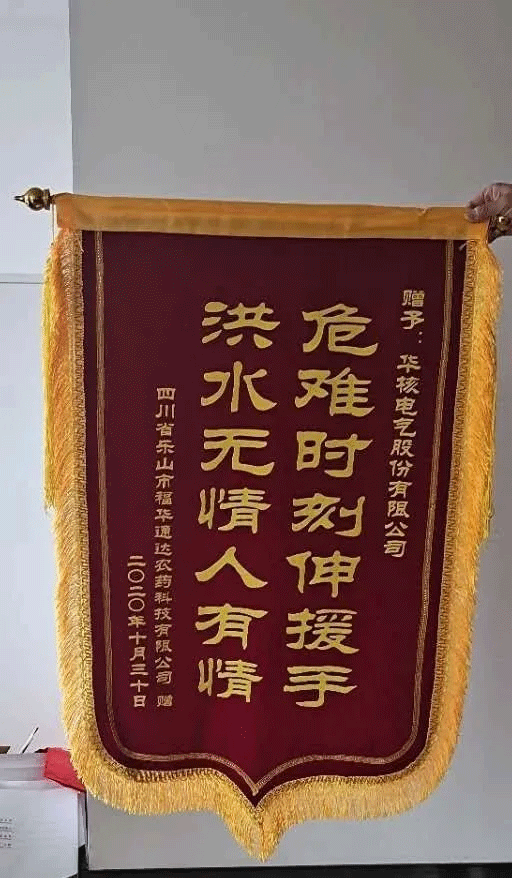 赠予：华核电气股份有限公司
危难时刻伸援手
洪水无情人有情
四川省乐山市福华通达农药科技有限公司 赠
二〇二〇年十月三十日